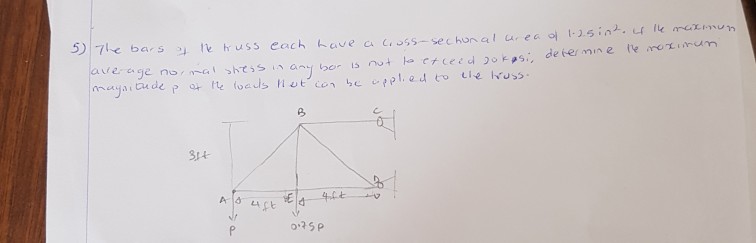 5) The bars of the truss each have a cross-sectional area of 1.25 in². if the maximum
average normal stress in any bar is not to exceed 20 kpsi, determine the maximum
magnitude p of the loads that can be applied to the truss.
B
C
3ft
A
4ft
E
4ft
D
P
0.75P